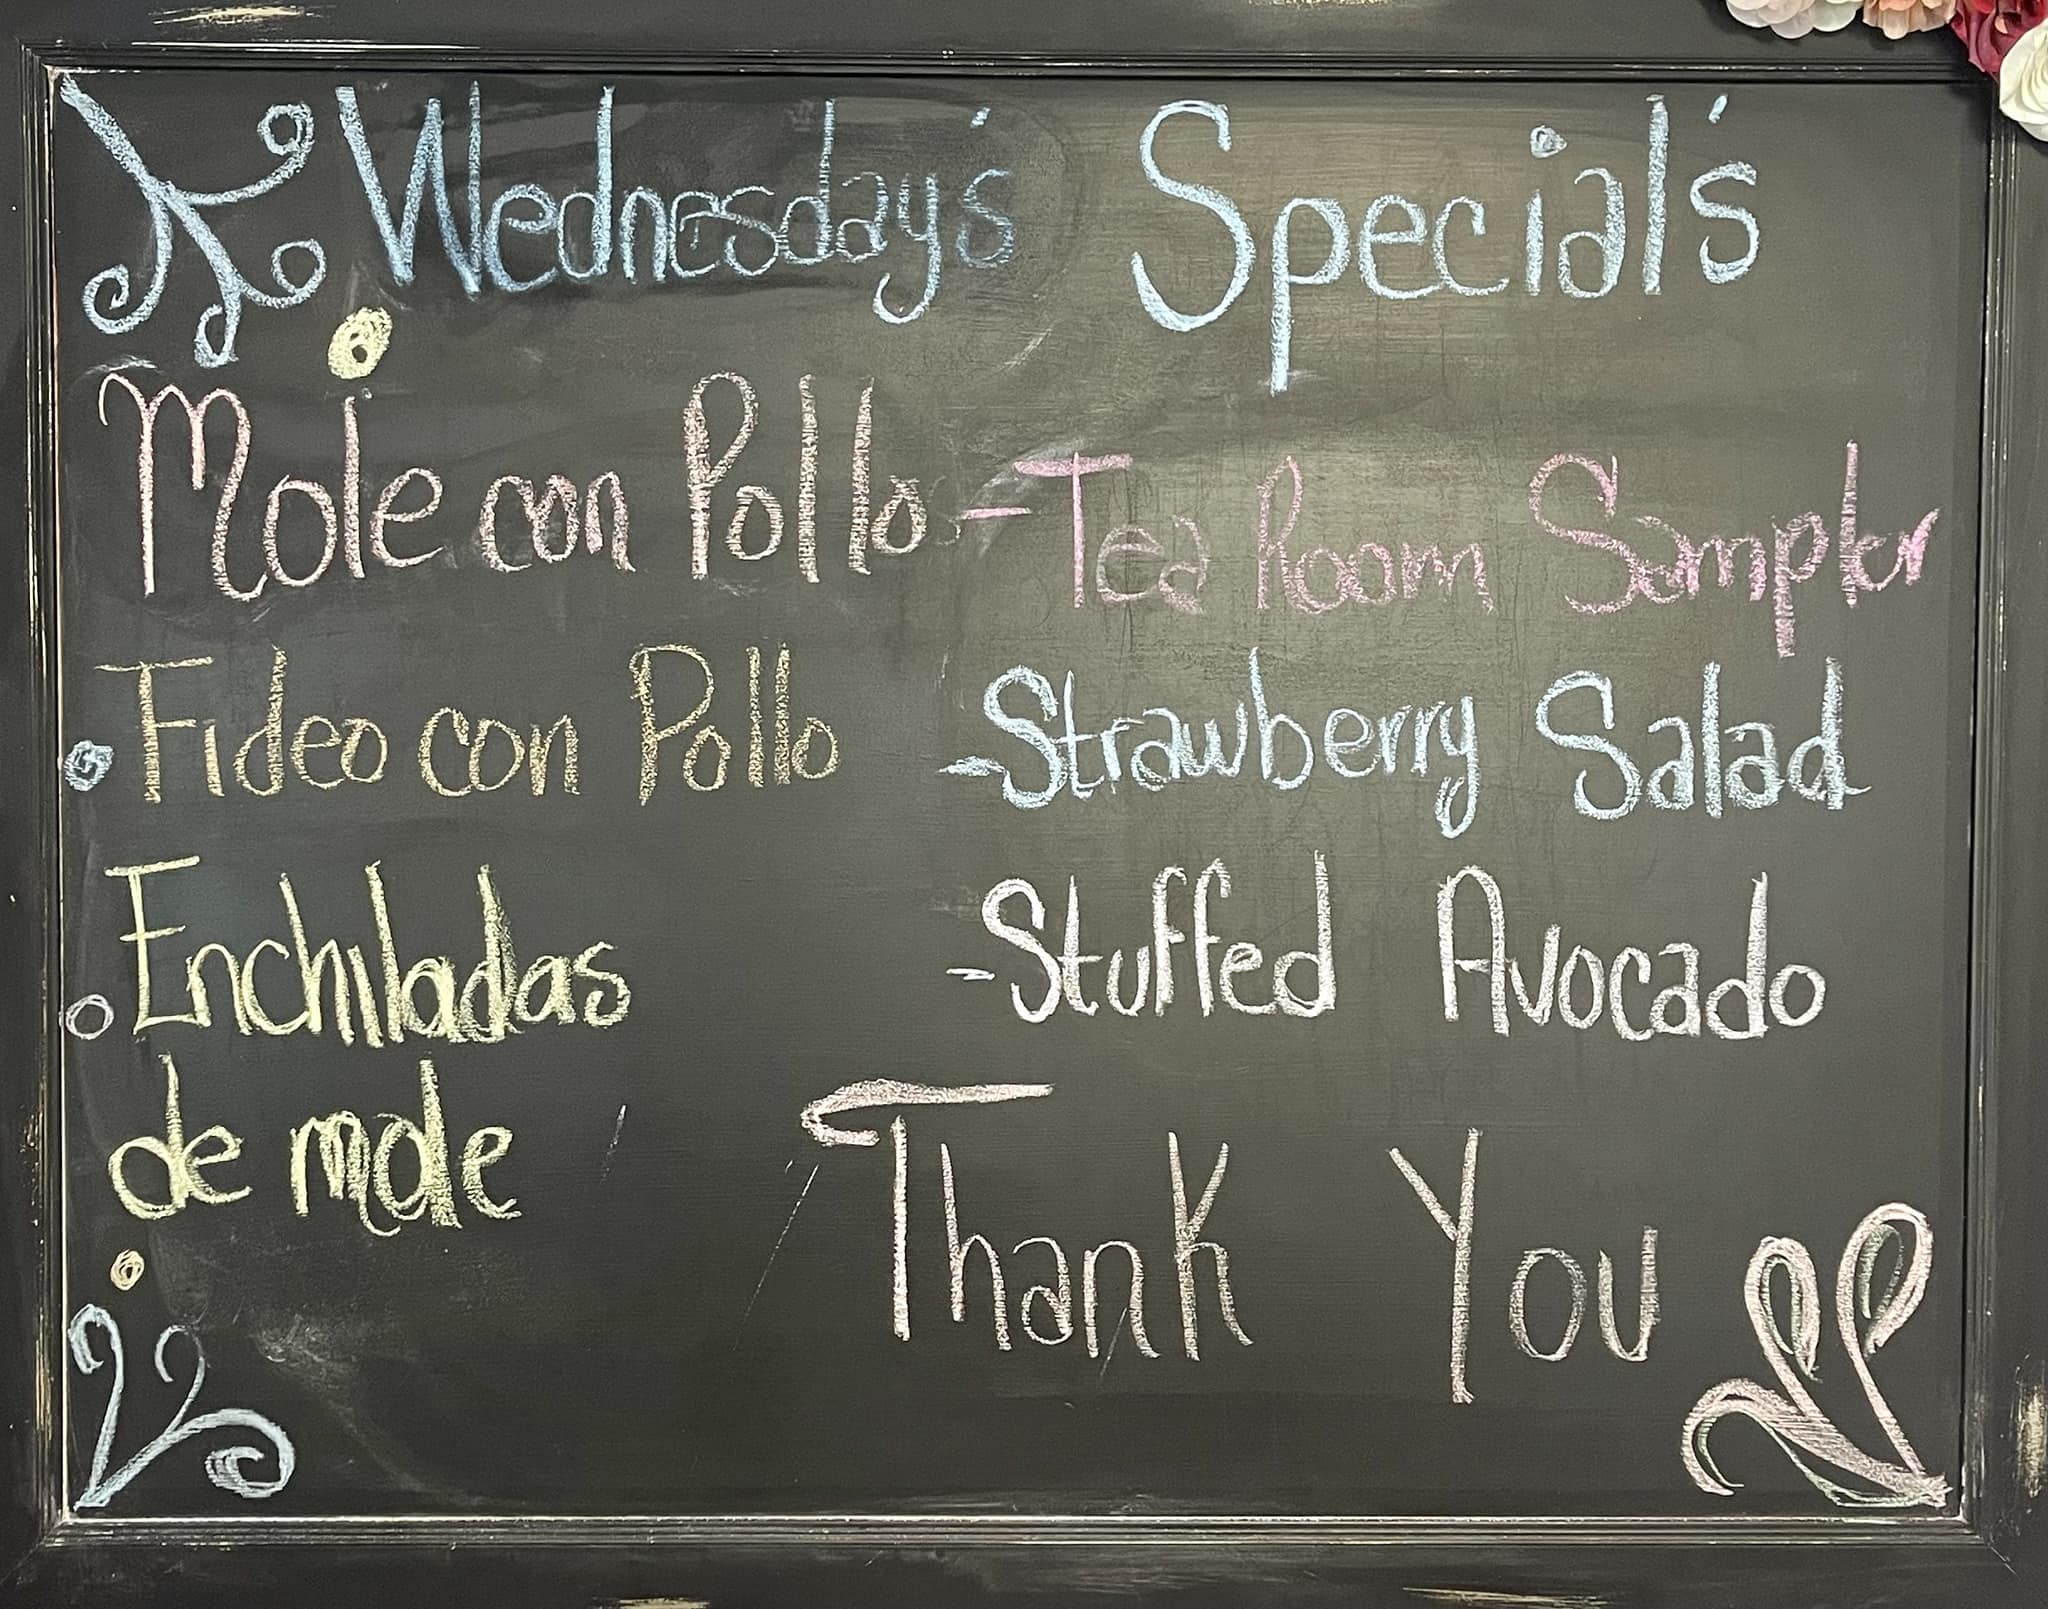 Wednesday's Special's
Mole con Pollo
Fideo con Pollo
Enchiladas
de mole
-Tea Room Sampler
-Strawberry Salad
-Stuffed Avocado
Thank You